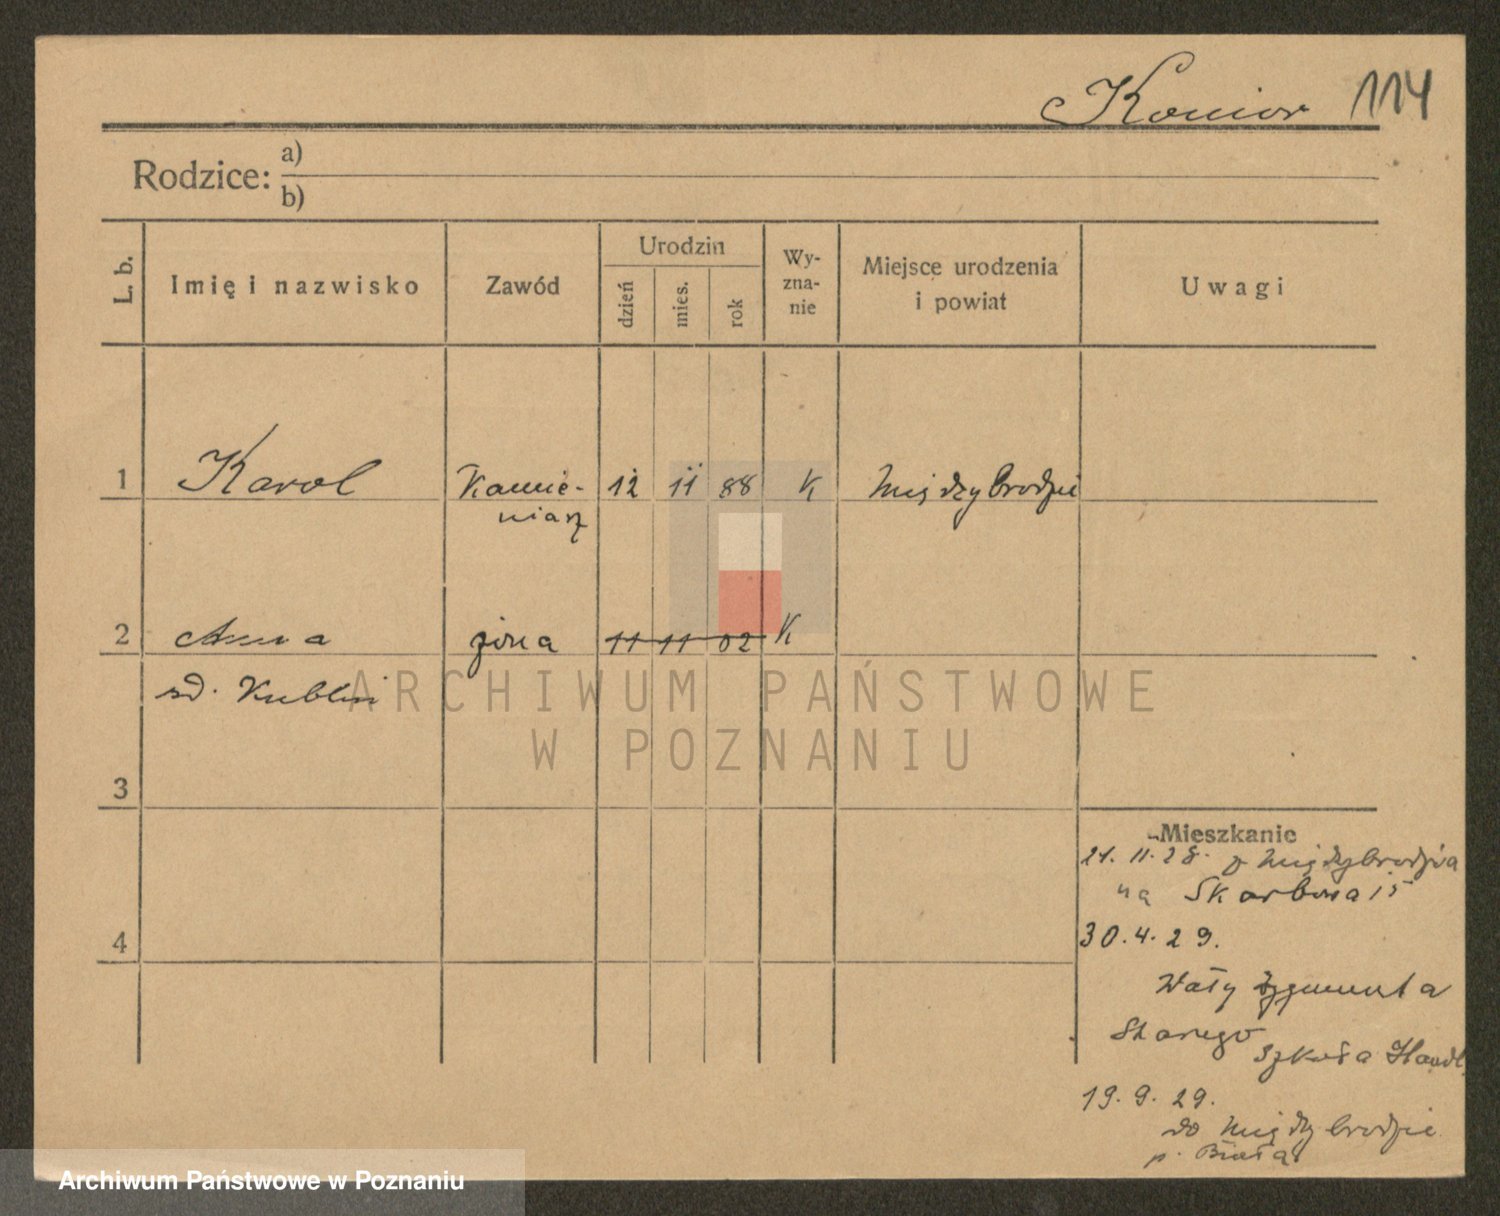 Konior 114
Rodzice: a)
b)
L. b. Imię i nazwisko Zawód Urodzin dzień mies. rok Wy-zna-nie Miejsce urodzenia i powiat Uwagi
1 Karol Kamie- 12 11 88 K Międzybrodzie
niarz
2 Anna żona 11 11 02 K
ARCHIWUM PAŃSTWOWE
W POZNANIU
3
Mieszkanie
21. 11. 28. z Międzybrodzia
na Skarbowa 15
4
30. 4. 29.
Wały Zygmunta
Starego
Szkoła Handl.
19. 9. 29.
do Międzybrodzie
p. Biała
Archiwum Państwowe w Poznaniu